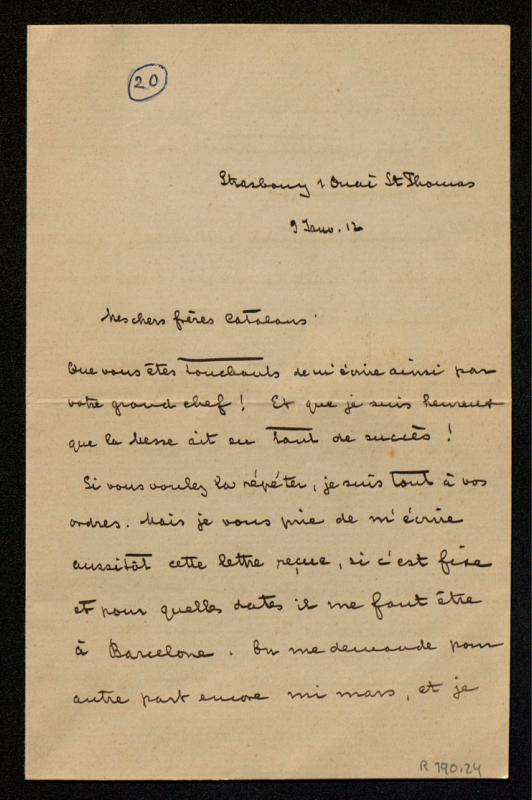 20
Strasbourg 1 Quai St Thomas
9 Janv. 12
Mes chers frères Catalans
Que vous êtes touchants de m'écrire ainsi par
votre grand chef! Et que je suis heureux
que la Messe ait eu tant de succès!
Si vous voulez la répéter, je suis tout à vos
ordres. Mais je vous prie de m'écrire
aussitôt cette lettre reçue, si c'est fixe
et pour quelles dates il me faut être
à Barcelone. On me demande pour
autre part encore mi mars, et je
R 190.24